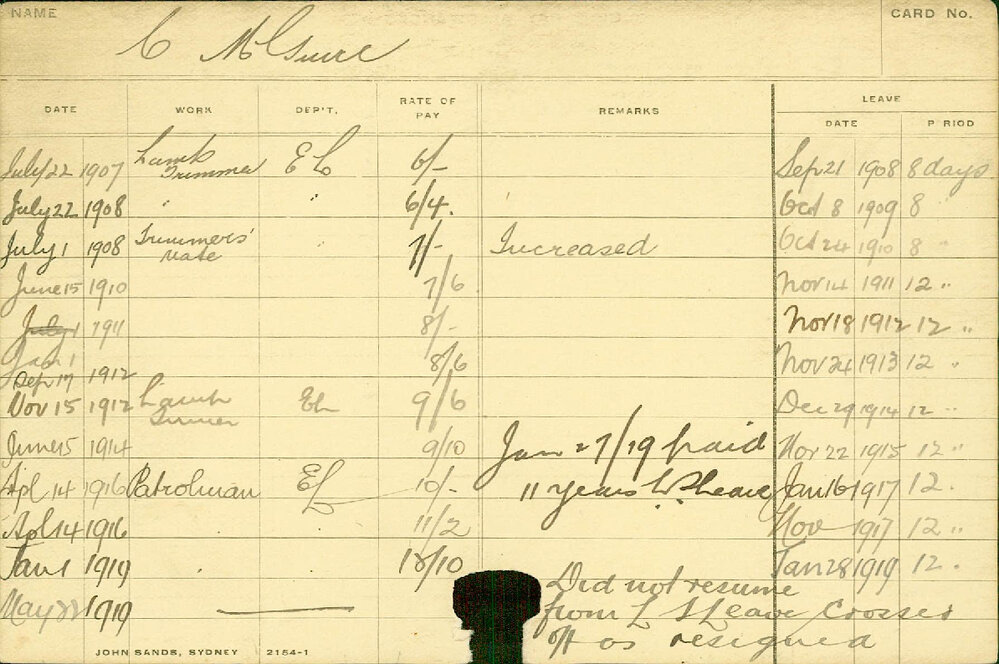 NAME
C McGuire
CARD No.
DATE WORK DEP'T. RATE OF PAY REMARKS LEAVE
DATE P RIOD
July 22 1907 Lamp Trimmer E L 6/- Sep 21 1908 8 days
July 22 1908 " " 6/4. Oct 8 1909 8 "
July 1 1908 Trimmers' rate " 7/- Increased Oct 24 1910 8 "
June 15 1910 7/6 Nov 14 1911 12 "
July 1 1911 8/- Nov 18 1912 12 "
Jan 1
Sep 17 1912 8/6 Nov 24 1913 12 "
Nov 15 1912 Lamp Trimmer EL 9/6 Dec 29 1914 12 "
June 15 1914 9/10 Jan 27/19 paid Nov 22 1915 12 "
Apl 14 1916 Patrolman EL 10/- 11 years Leave Jan 16 1917 12 "
Apl 14 1916 " " 11/2 Nov 1917 12 "
Jan 1 1919 " " /10 Jan 28 1919 12 "
May 22 1919 Did not resume
from L S Leave Crossed
off as resigned
JOHN SANDS, SYDNEY 2154-1